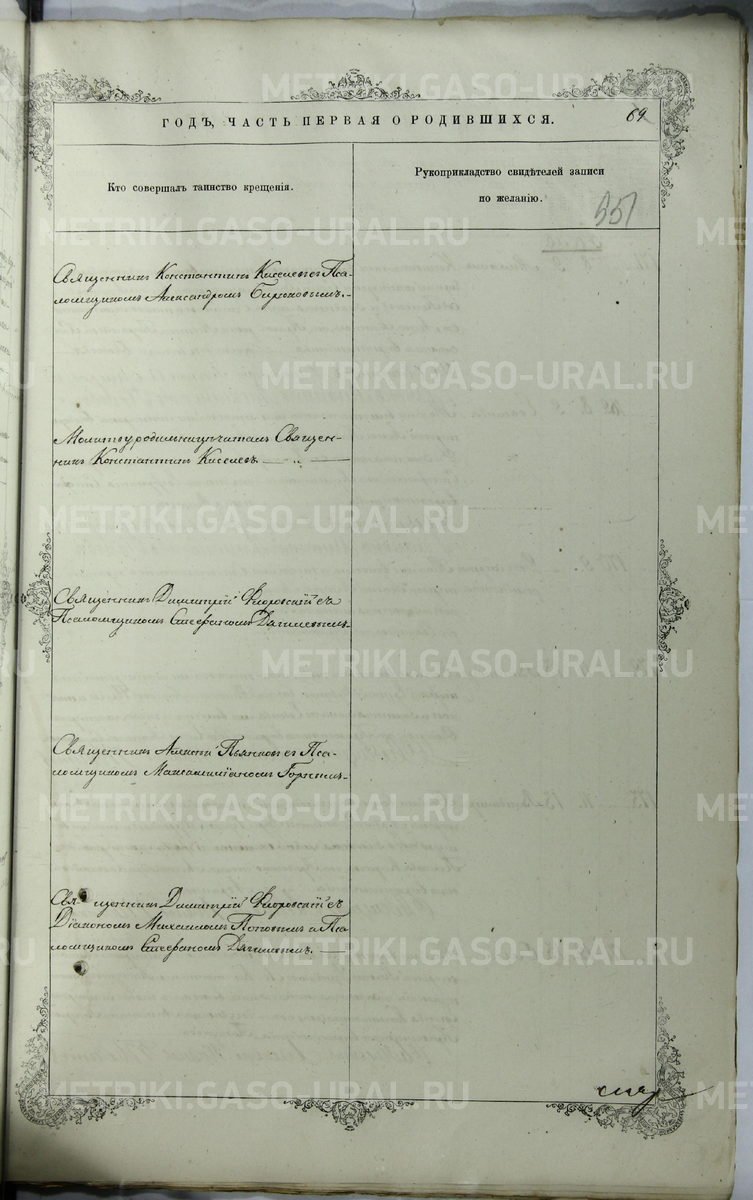 ГОДЪ, ЧАСТЬ ПЕРВАЯ О РОДИВШИХСЯ.
69
Кто совершалъ таинство крещенія.
Рукоприкладство свидѣтелей записи
по желанію.
551
Священникъ Константинъ Киселевъ съ Пса-
ломщикомъ Александромъ Бирюковымъ.
Молитву родильницѣ читалъ Священ-
никъ Константинъ Киселевъ.
Священникъ Димитрій Флоровскій съ
Псаломщикомъ Стефаномъ Дягилевымъ.
Священникъ Алексій Пьянковъ съ Пса-
ломщикомъ Максимиліаномъ
Священникъ Димитрій Флоровскій съ
Діакономъ Михаиломъ Поповымъ и Пса
ломщикомъ Стефаномъ Дягилевымъ.
METRIKI.GASO-URAL.RU